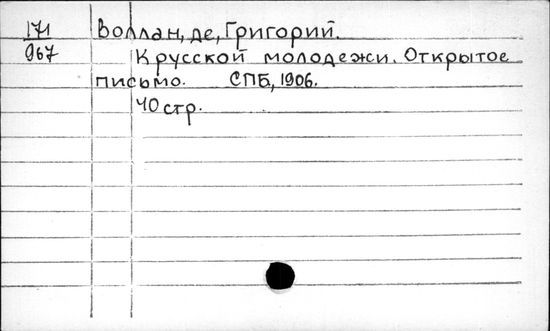 171 Воллан, де, Григорий.
967 К русской молодежи. Открытое
письмо. СПБ, 1906.
40 стр.